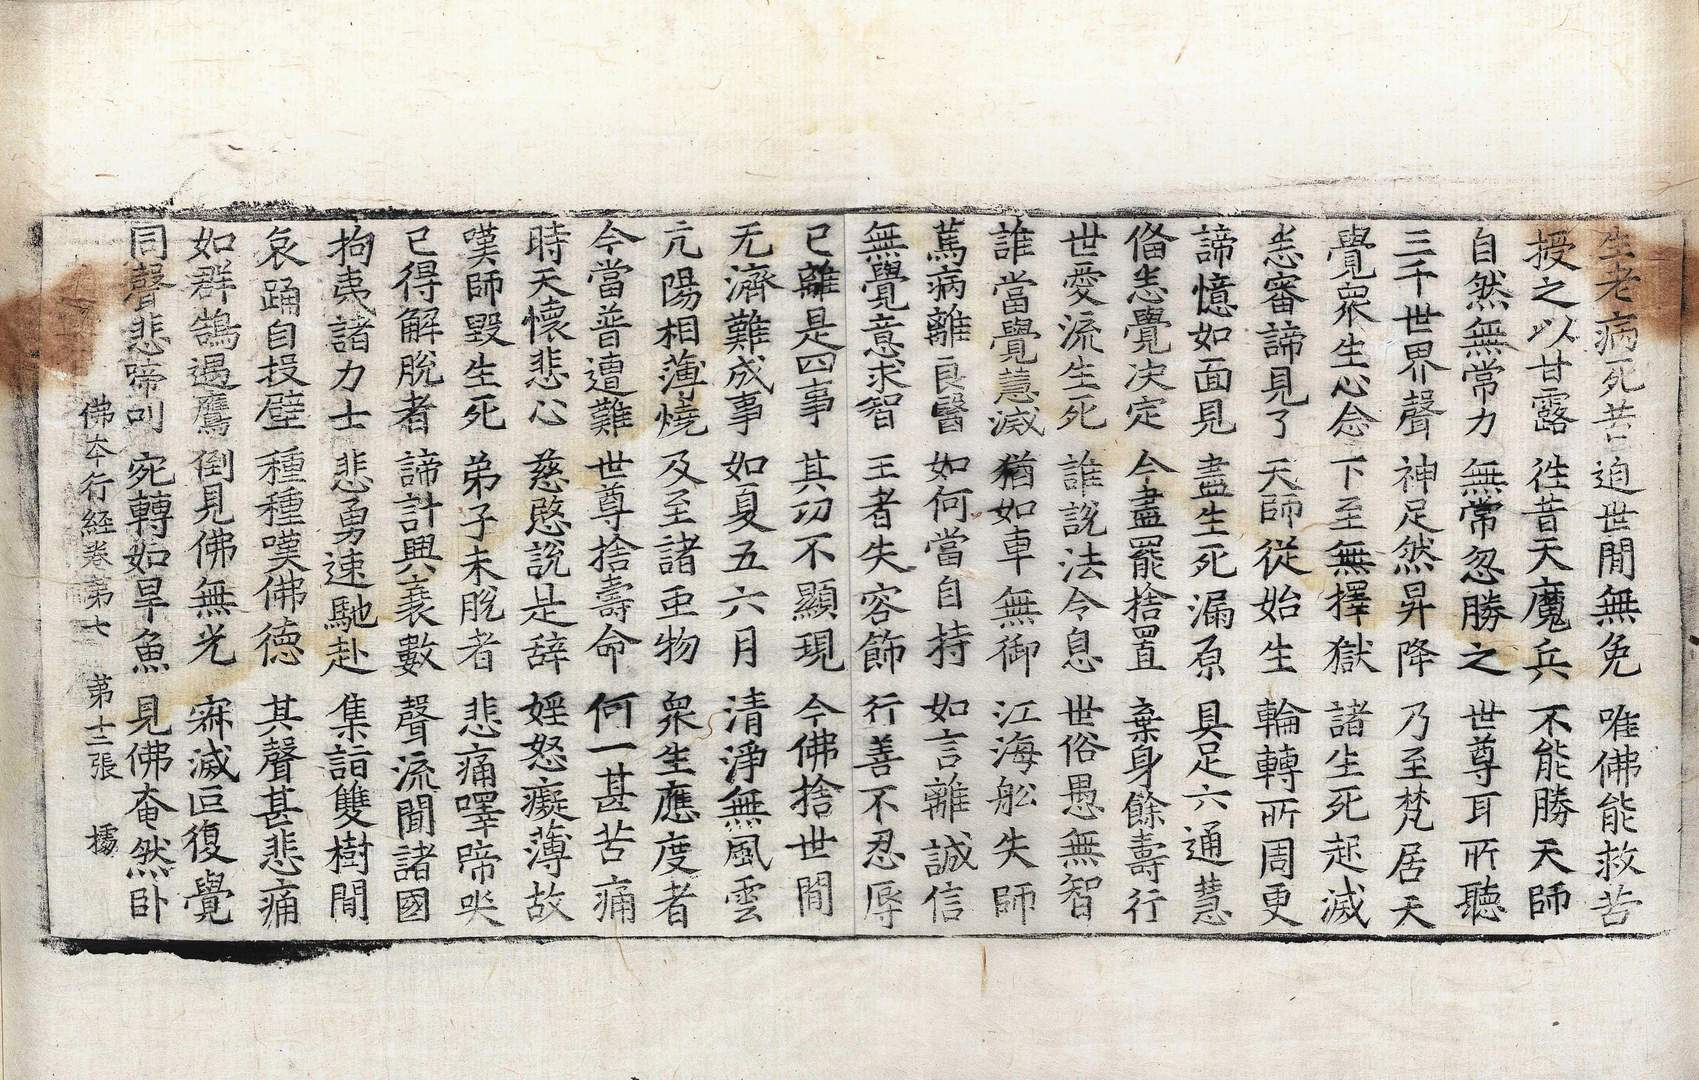 生老病死苦 迫世間無免 唯佛能救苦
授之以甘露 往昔天魔兵 不能勝天師
自然無常力 無常忽勝之 世尊耳所聽
三千世界聲 神足然昇降 乃至梵居天
覺衆生心念 下至無擇獄 諸生死起滅
恙審諦見了 天師從始生 輪轉所周更
諦憶如面見 盡生死漏原 具足六通慧
俻恙覺决定 今盡罷捨置 棄身餘壽行
世愛流生死 誰說法令息 世俗愚無智
誰當覺慧滅 猶如車無御 江海舩失師
萬病離良醫 如何當自持 如言離誠信
無覺意求智 王者失容飾 行善不忍辱
已離是四事 其功不顯現 今佛捨世間
无濟難成事 如夏五六月 清淨無風雲
亢陽相薄燒 及至諸亜物 衆生應度者
今當普遭難 世尊捨壽命 何一甚苦痛
時天懷悲心 慈愍說是辞 婬怒癡薄故
嘆師毀生死 弟子未脫者 悲痛㘁啼哭
已得解脫者 諦計興衰數 聲流聞諸國
拘夷諸力士 悲勇速馳赴 集詣雙樹間
哀踊自投壁 種種嘆佛德 其聲甚悲痛
如群鵠遇鷹 倒見佛無光 寂滅叵復覺
同聲悲啼叫 宛轉如旱魚 見佛奄然卧
佛本行經卷第七 第十二張 㩲